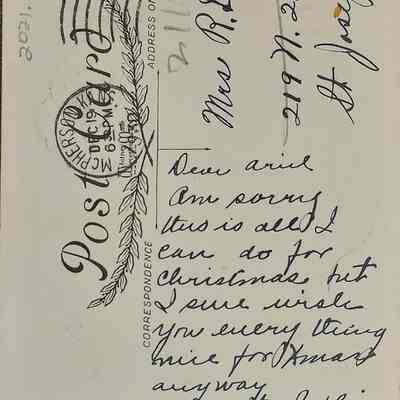 2021.
Post Card
ADDRESS ON
CORRESPONDENCE
MCPHERSON, K
DEC 19
6 30 PM
211
Mrs R.
219 N. 2
St Jose
Dear Ariel
Am sorry
this is all I
can do for
Christmas but
I sure wish
you every thing
nice for Xmas
anyway